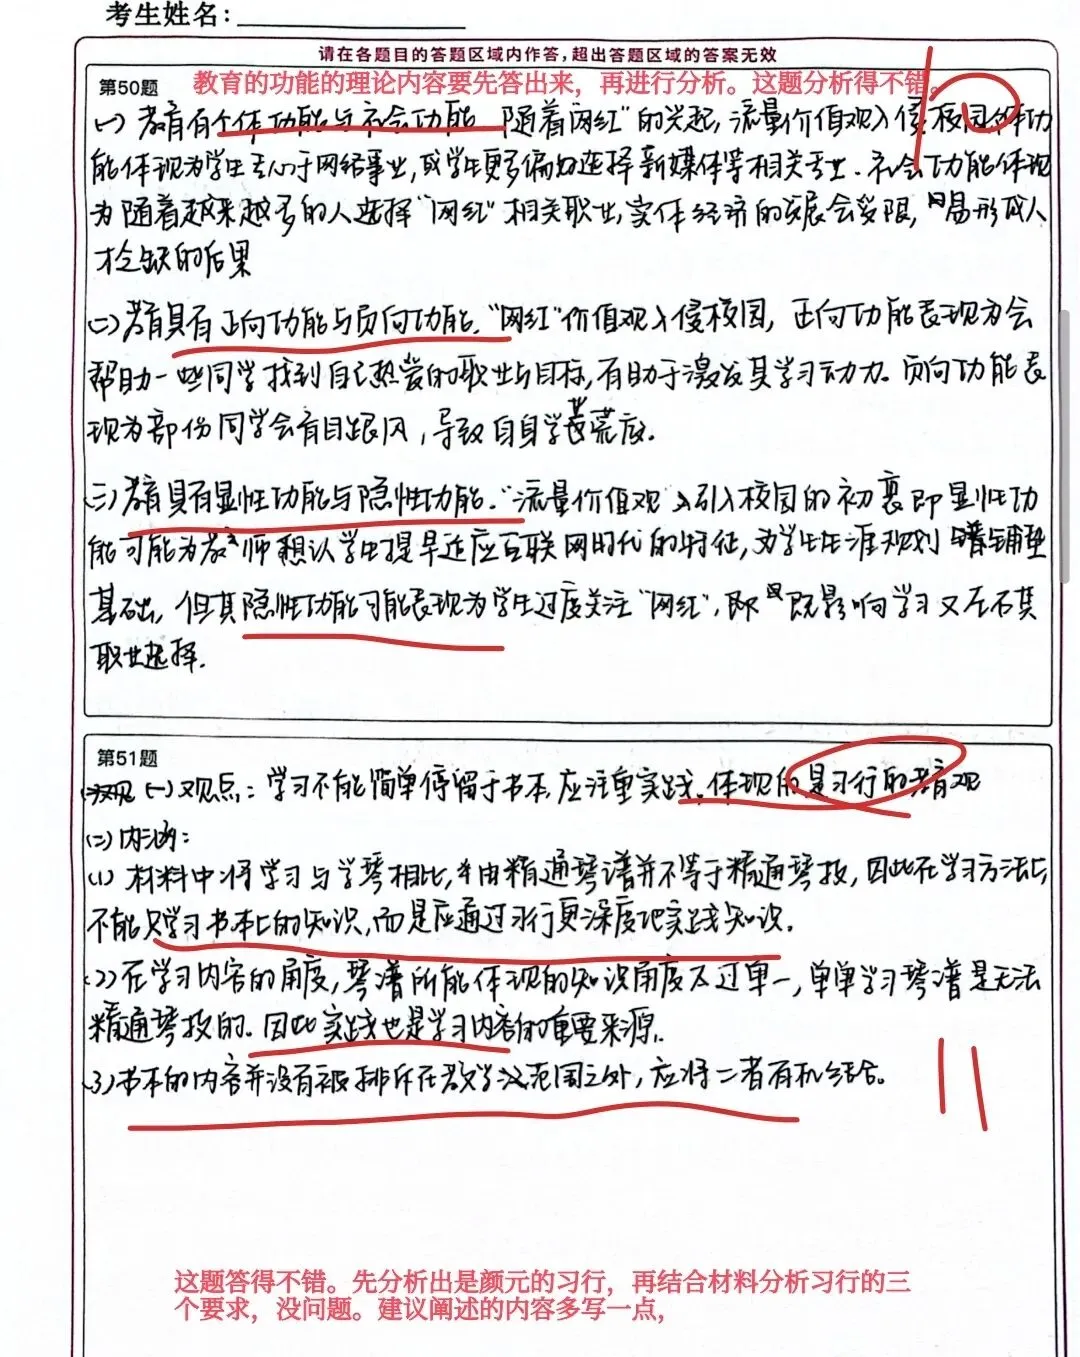 考生姓名：
请在各题目的答题区域内作答，超出答题区域的答案无效
第50题
教育的功能的理论内容要先答出来，再进行分析。这题分析得不错。
10
(一) 教育有个体功能与社会功能 随着“网红”的兴起，流量价值观入侵校园 个体功
能体现为学生专心于网络事业，或学生更多偏向选择新媒体等相关专业．社会功能体现
为随着越来越多的人选择“网红”相关职业，实体经济的发展会受限，易形成人
才空缺的后果
(二)教育具有正向功能与负向功能．“网红”价值观入侵校园，正向功能表现为会
帮助一些同学找到自己热爱的职业与目标，有助于激发其学习动力．负向功能表
现为部份同学会盲目跟风，导致自身学业荒废．
(三)教育具有显性功能与隐性功能．“流量价值观”引入校园的初衷即显性功
能可能为教师想让学生提早适应互联网时代的特征，为学生生涯规划铺垫
基础，但其隐性功能可能表现为学生过度关注“网红”，即既影响学习又左右其
职业选择．
第51题
(一)观点：学习不能简单停留于书本，应注重实践，体现的是习行的教育观
(二)内涵：
(1) 材料中将学习与学琴相比，由精通琴谱并不等于精通琴技，因此在学习方法上，
不能只学习书本上的知识，而是应通过习行更深度地实践知识．
(2)在学习内容的角度，琴谱所能体现的知识角度太过单一，单单学习琴谱是无法
精通琴技的．因此实践也是学习内容的重要来源．
(3)书本的内容并没有被排斥在教学范围之外，应将二者有机结合。
11
这题答得不错。先分析出是颜元的习行，再结合材料分析习行的三
个要求，没问题。建议阐述的内容多写一点，